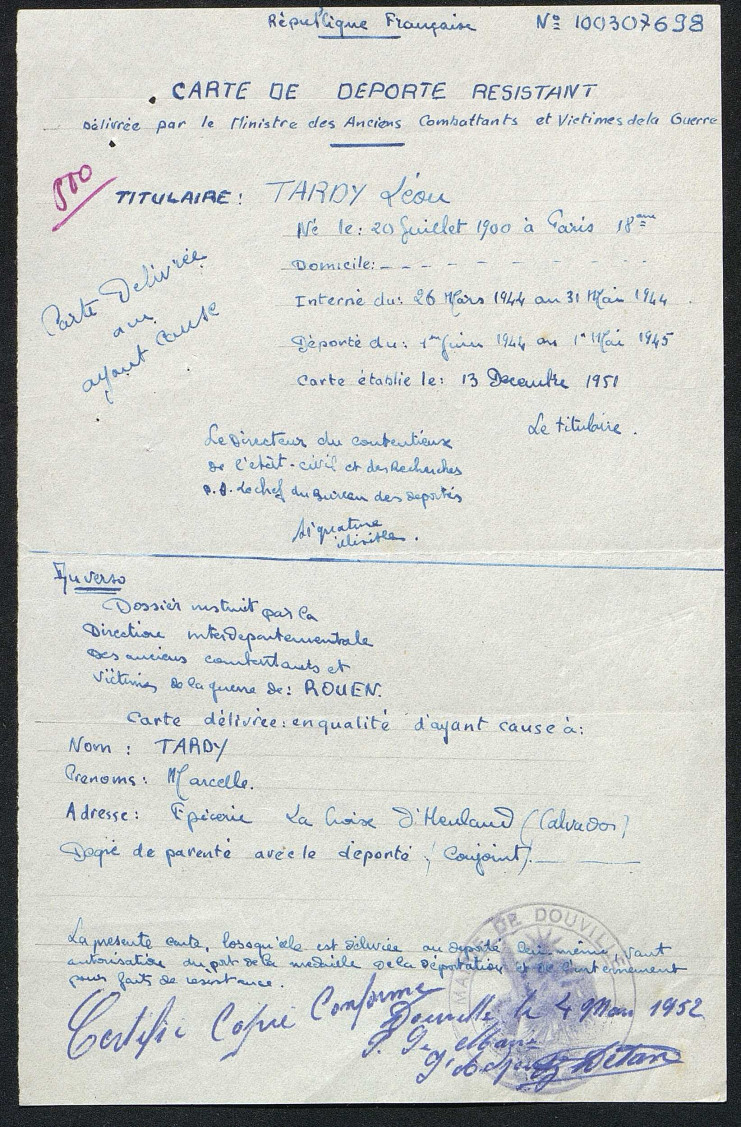 République Française Nº 100307698
CARTE DE DEPORTE RESISTANT
Délivrée par le Ministre des Anciens Combattants et Victimes de la Guerre
TITULAIRE: TARDY Léon
Né le: 20 Juillet 1900 à Paris 18eme
Domicile:
Carte Delivrée
au
ayant cause
Interné du: 26 Mars 1944 au 31 Mai 1944
Déporté du: 1er Juin 1944 au 1er Mai 1945
Carte établie le: 13 Decembre 1951
Le titulaire.
Le Directeur du contentieux
de l'etat-civil et des Recherches
Le chef du Bureau des deportés
Signature
illisible.
Au verso
Dossier instruit par la
Direction interdepartementale
Des anciens combattants et
Victimes de la guerre de: ROUEN.
Carte délivrée: en qualité d'ayant cause à:
Nom: TARDY
Prenoms: Marcelle.
Adresse: Epicerie La Croix d'Heuland (Calvados)
Degré de parenté avec le déporté (Conjoint).
La presente carte, lorsqu'elle est délivrée au deporté lui même vaut
autorisation du port de la medaille de la déportation et de l'internement
pour faits de resistance.
MAIRIE DE DOUVILLE
Certifie Copie Conforme
Douville le 4 Mars 1952
P. Le Maire
l'Adjoint